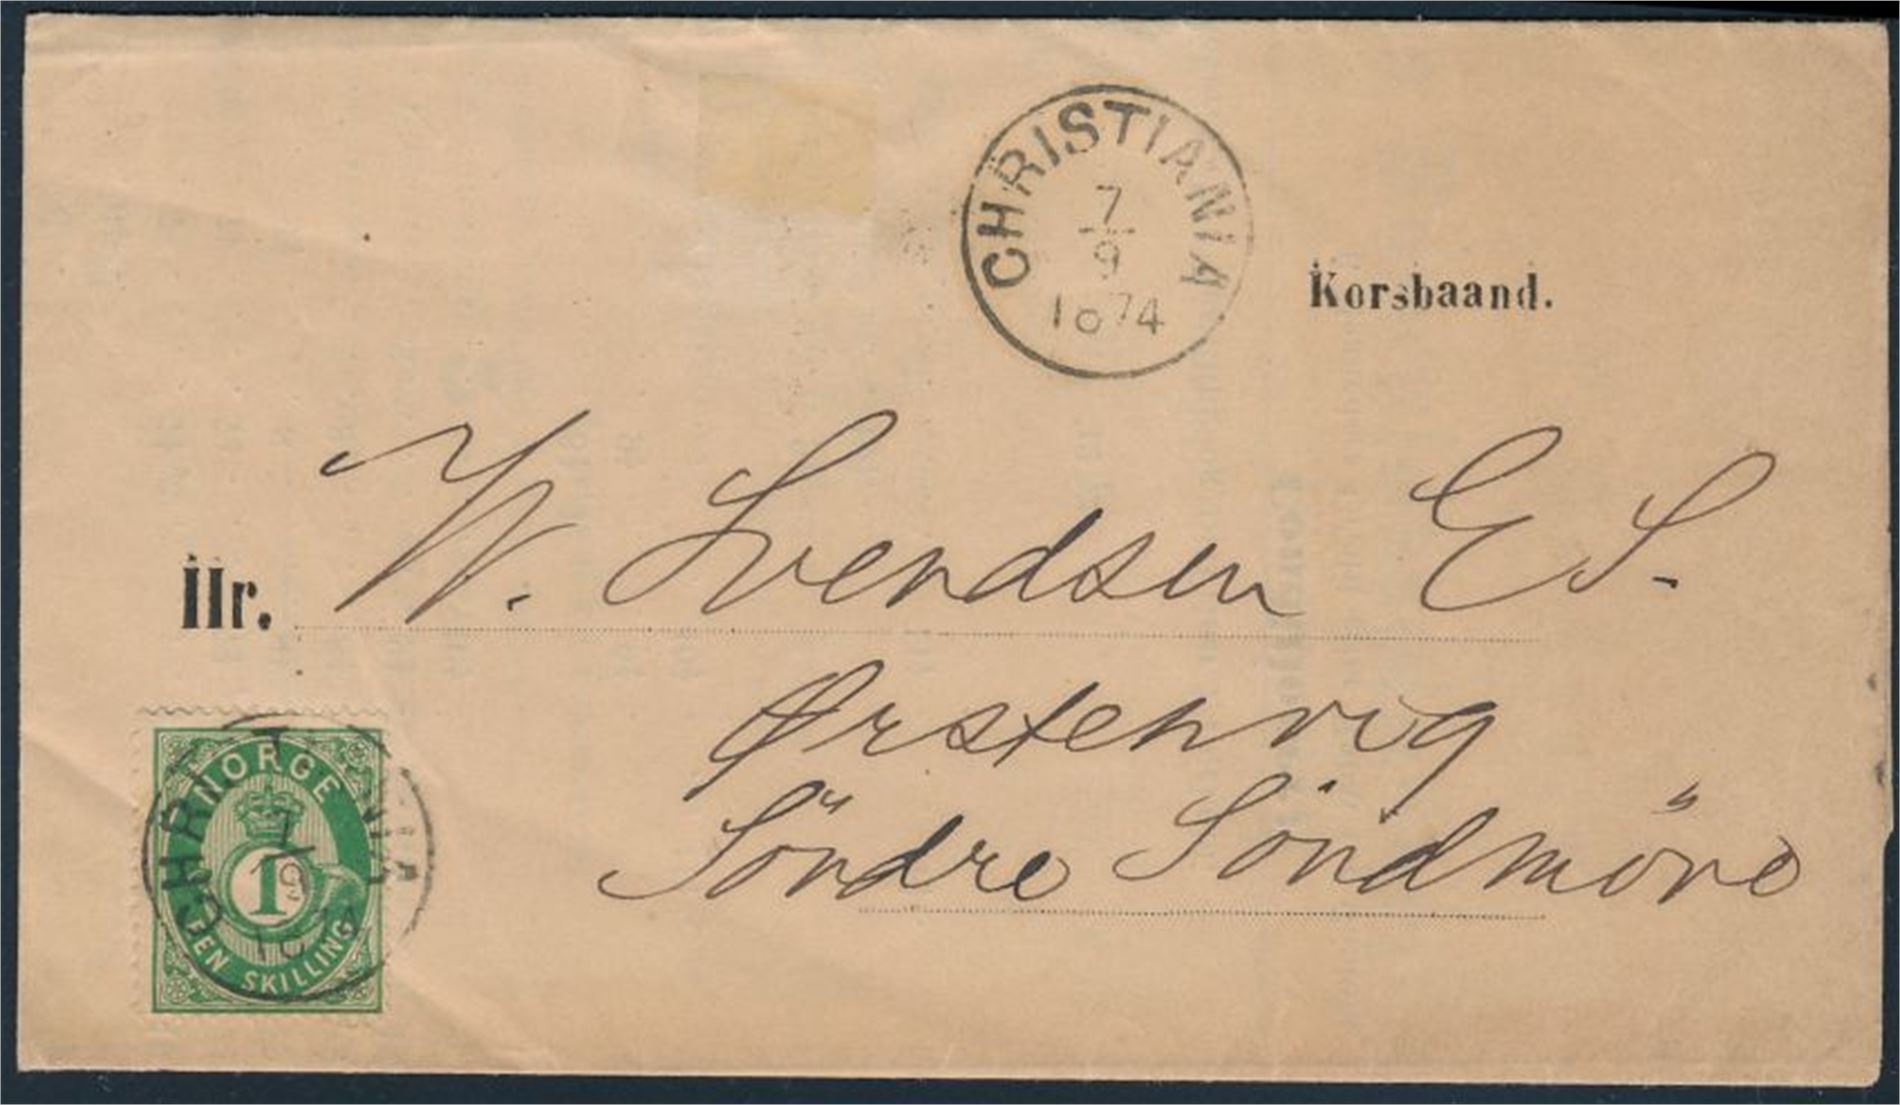 CHRISTIANIA
7
9
1874
Korsbaand.
Hr. W. Svendsen E S.
Ørstenvig
Söndre Söndmöre
NORGE
1
EN SKILLING
CHRISTIANIA
7
9
1874